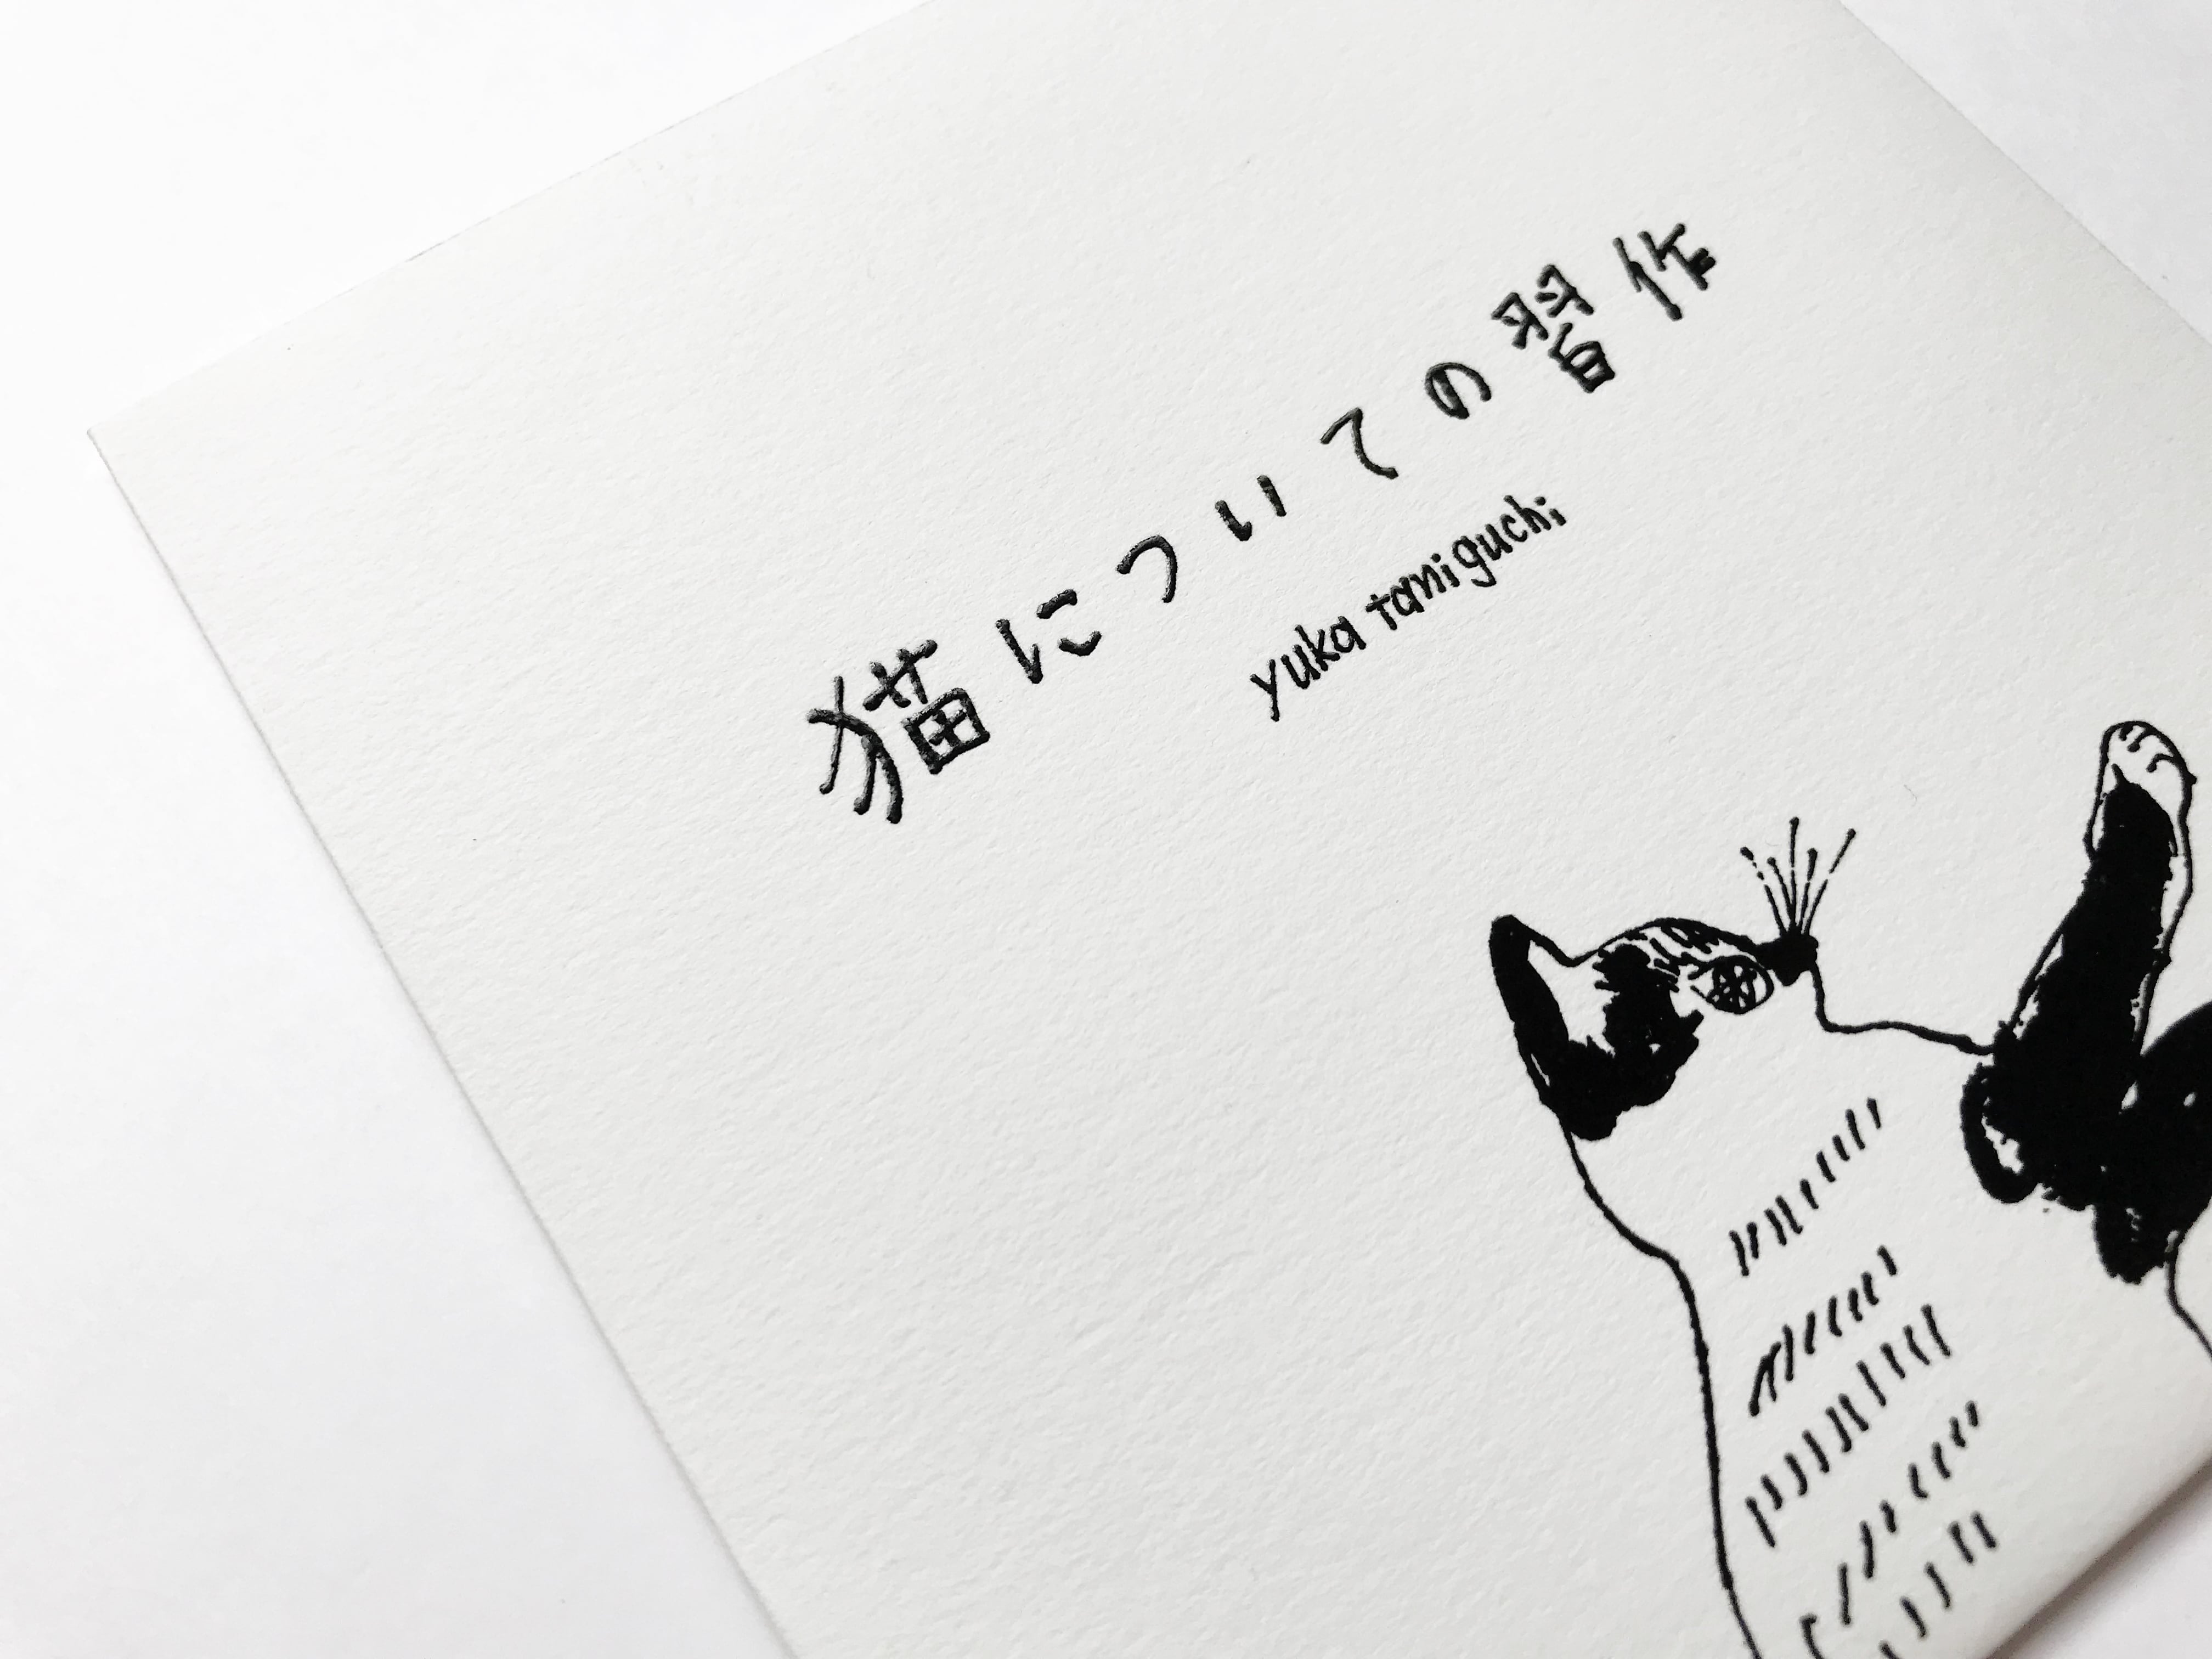 猫についての習作
yuka taniguchi